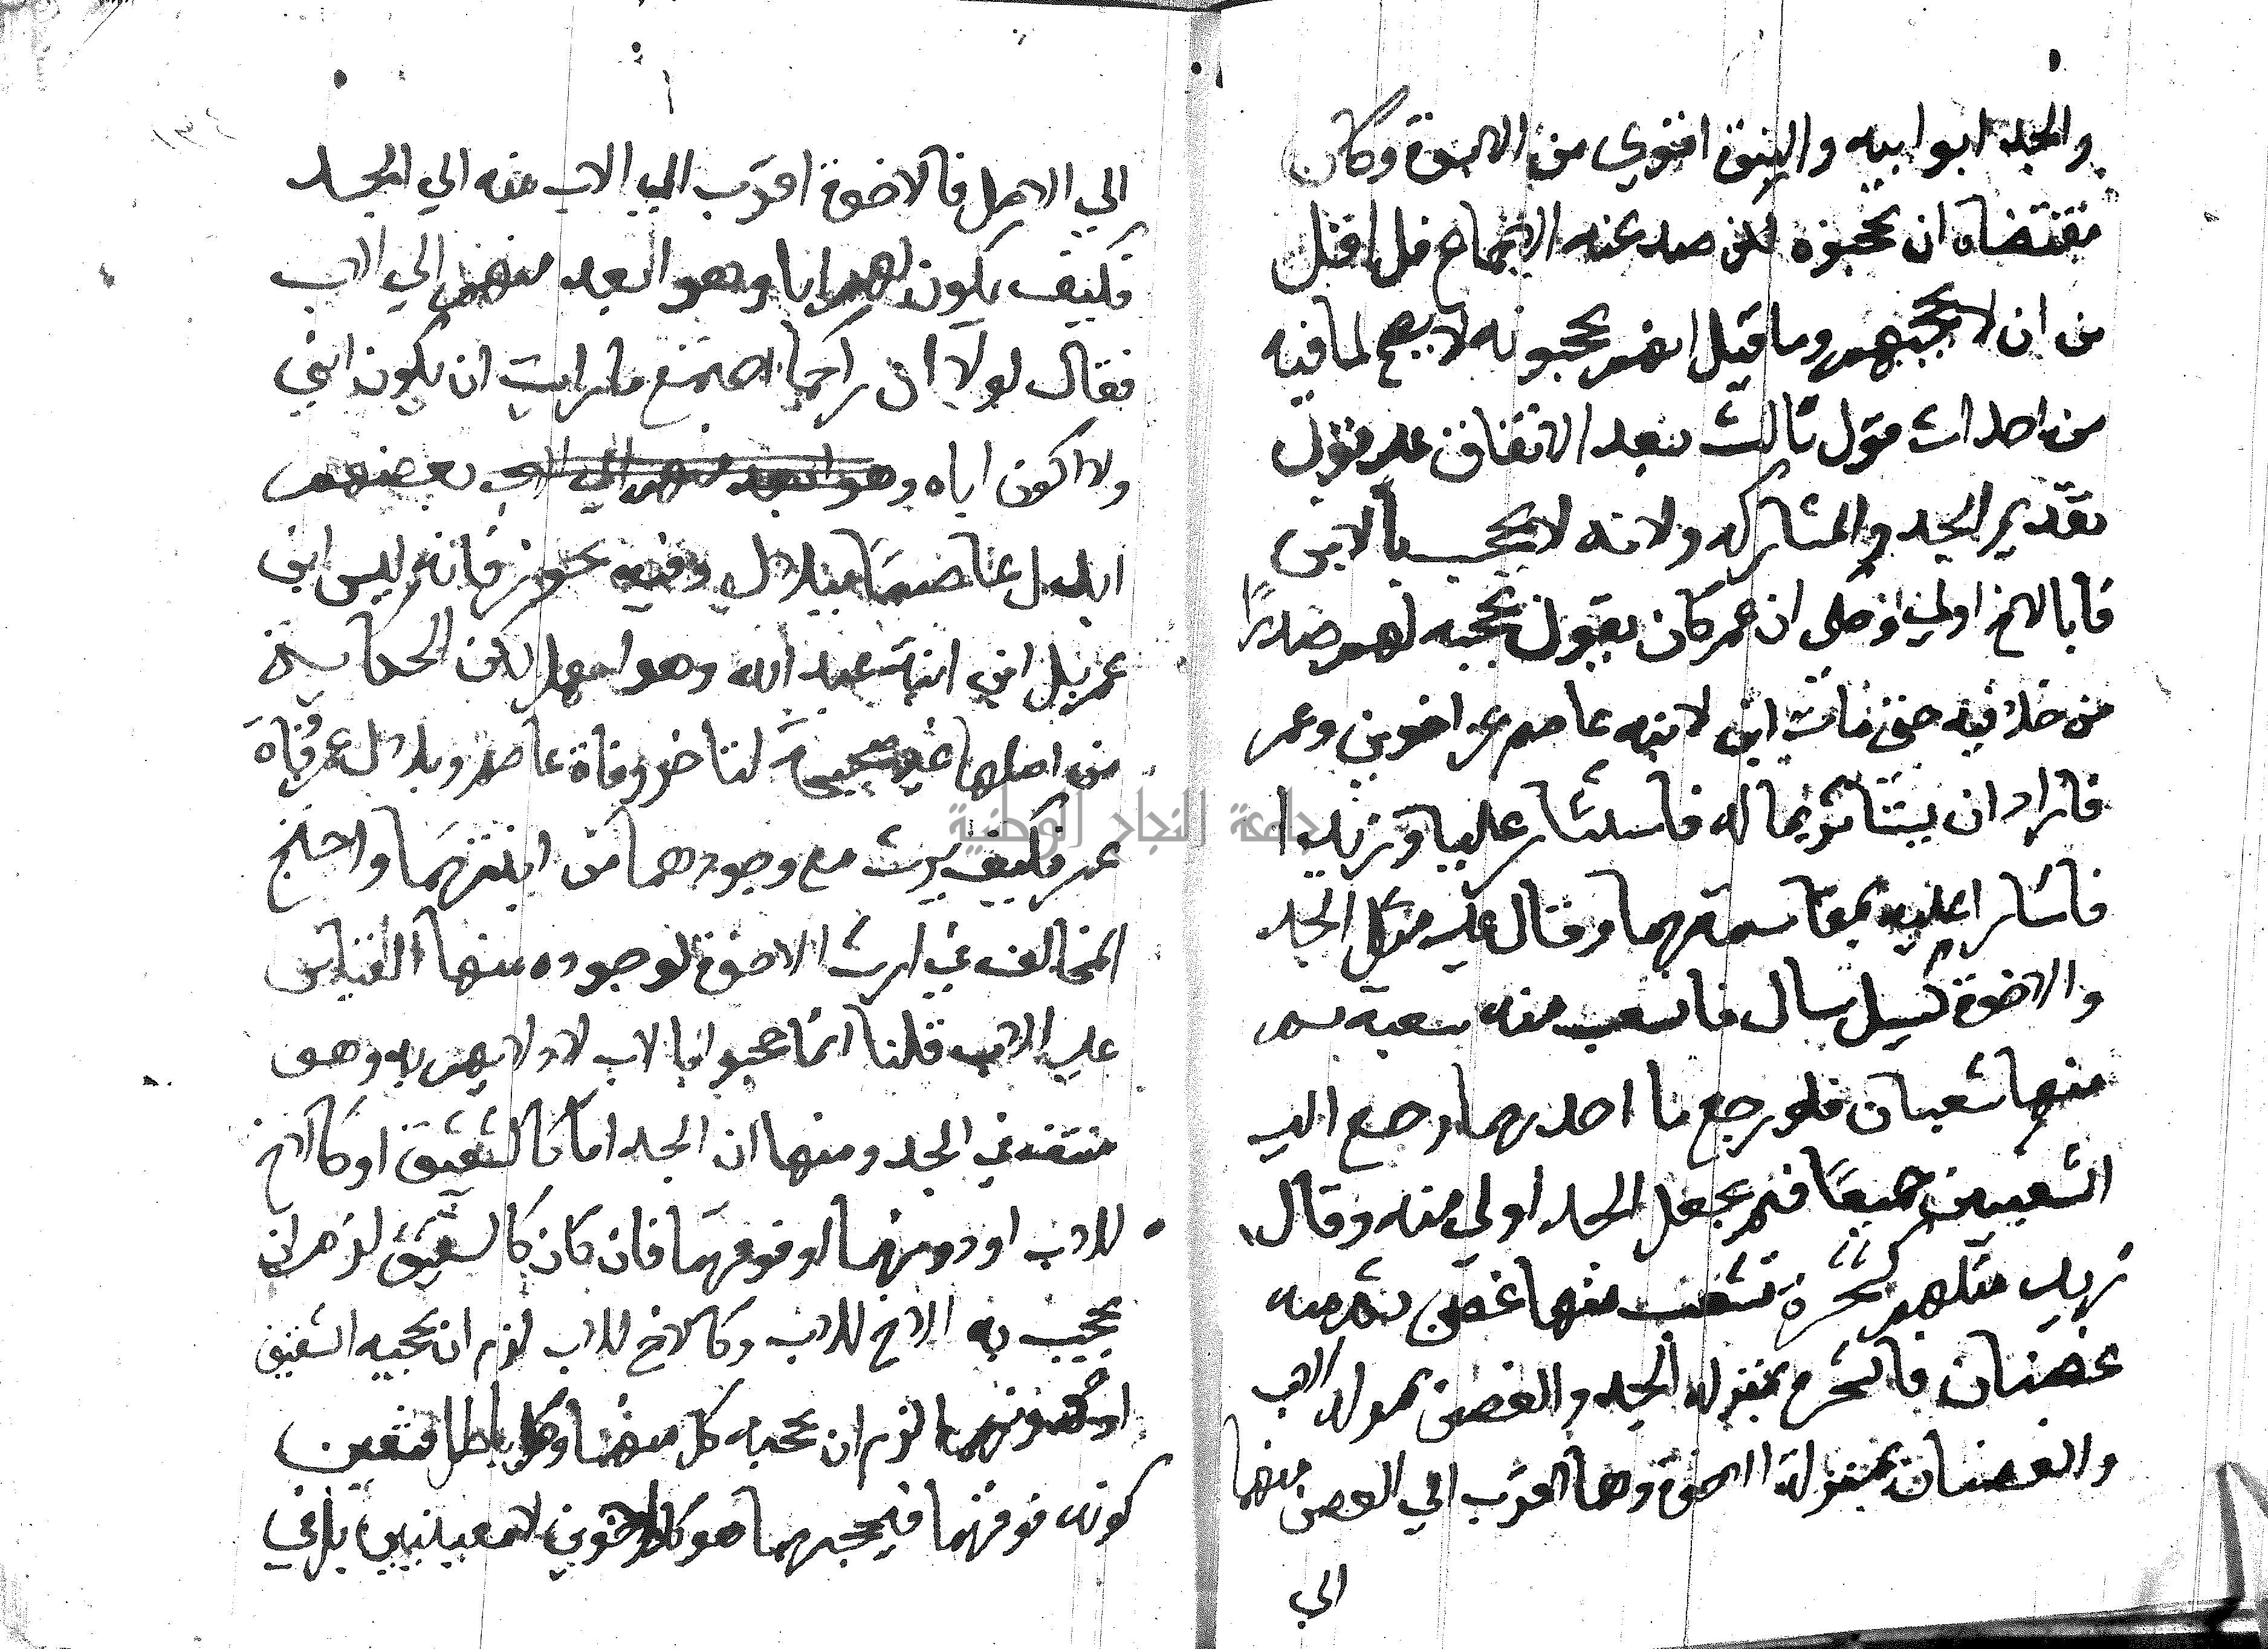 والجد ابو ابيه والبنوة اقوي من الابوة وكان
مقتضاه ان يحجبوه لكن صد عنه الاجماع فلا اقل
من ان لا يحجبهم وما قيل انهم يحجبونه لا يصح لما فيه
من احداث قول ثالث بعد الاتفاق علي قول
تقديم الجد والمشاركه ولانه لا يحجب بالابن
فابالاخ اولي وحكي ان عمر كان يقول بحجبه لهم صدرًا
من خلافته حتي مات ابن لابنه عاصم عن اخوين وعمر
فاراد ان يستاثر بماله فاستشار عليا وزيدا
فاشارا عليه بمقاسمتهما وقال علي مثل الجد
والاخوة كسيل سال فانشعب منه شعبة ثم
منها شعبان فلو رجع ما احدهما رجع الي
الشعبين جميعًا فلم يجعل الجد اولي منه وقال
زيد مثلهم كشجرة تشعب منها غصن ثم منه
غصنان فالشجرة بمنزلة الجد والغصن بمنزلة الاب
والغصنان بمنزلة الاخوة وهما اقرب الي الغصن منهما
الي
الي الاصل فالاخوة اقرب الي الاب منه الي الجد
فكيف يكون لهم ابا وهو ابعد منهم الي الاب
فقال لولا ان رايكما اجتمع ما رايت ان يكون ابني
ولا اكون اباه وهو ابعد منهم الي الاب بعضهم
ابدل عاصمًا ببلال وفيه تجوز فانه ليس ابن
عمر بل ابن ابنه عبد الله وهو اسهل لكن الحكاية
من اصلها غير صحيحة لتاخر وفاة عاصم وبلال عن وفاة
عمر فكيف يرث مع وجودهما من ابنيهما واحتج
المخالف في ارث الاخوة لوجوه منها القياس
علي الاب قلنا انما حجبوا بالاب لادلايهم به وهو
منتف في الجد ومنها ان الجد اما كالشقيق او كالاخ
للاب او دونهما او فوقهما فان كان كالشقيق لزم ان
يحجب به الاخ للاب وكالاخ للاب لزم ان يحجبه الشقيق
او دونهما لزم ان يحجبه كل منهما وكل باطل فتعين
كونه فوقهما فيحجبهما هو كالاخوين لا معينين بل في
جامعة النجاح الوطنية